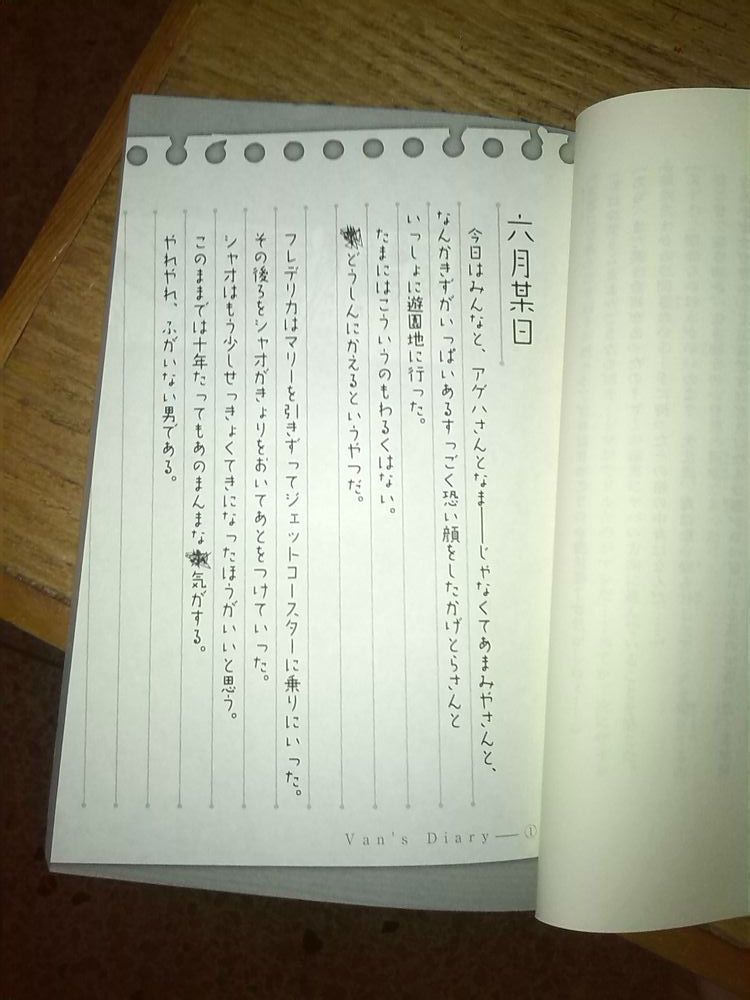 六月某日
今日はみんなと、アゲハさんとなま――じゃなくてあまみやさんと、
なんかきずがいっぱいあるすっごく恐い顔をしたかげとらさんと
いっしょに遊園地に行った。
たまにはこういうのもわるくはない。
どうしんにかえるというやつだ。
フレデリカはマリーを引きずってジェットコースターに乗りにいった。
その後ろをシャオがきょりをおいてあとをつけていった。
シャオはもう少しせっきょくてきになったほうがいいと思う。
このままでは十年たってもあのまんまな気がする。
やれやれ、ふがいない男である。
Van's Diary――①